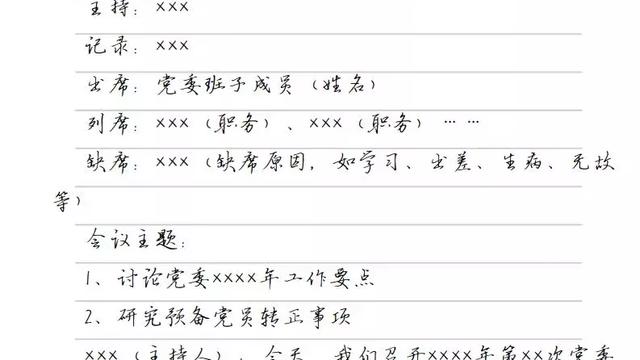 主持：×××
记录：×××
出席：党委班子成员（姓名）
列席：×××（职务）、×××（职务）……
缺席：×××（缺席原因，如学习、出差、生病、无故
等）
会议主题：
1、讨论党委××××年工作要点
2、研究预备党员转正事项
×××（主持人）：今天，我们召开××××年第××次党委